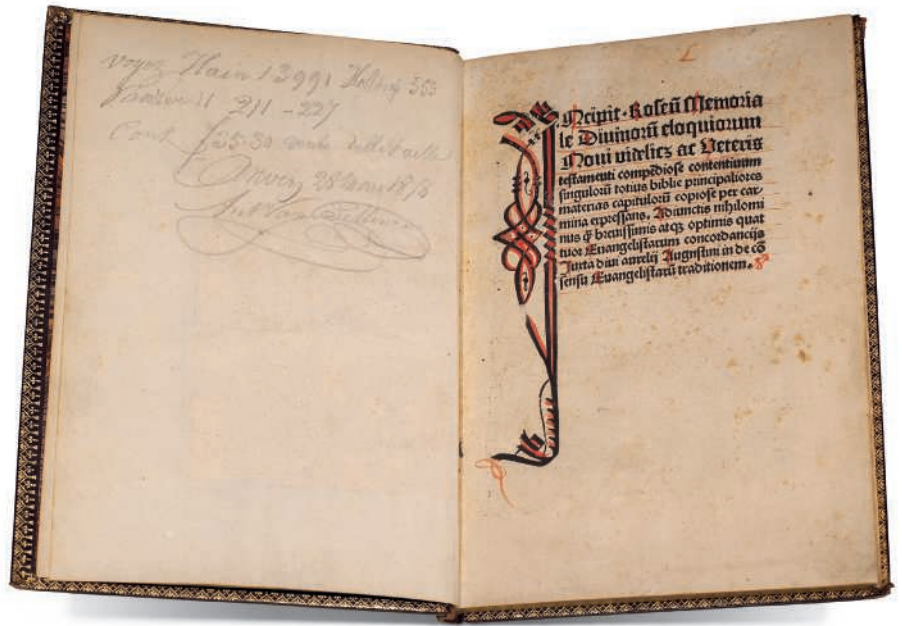 voyez Hain 13991 Holtrop 553
Panzer II 211-227
25-30
Anvers 28
L
Incipit. Roseũ Memoria
le Diuinorũ eloquiorum
Noui videlicz ac Veteris
testamenti compẽdiose contentiuum
singulorũ totius biblie principaliores
materias capitulorũ copiose per car-
mina expressans. Adiunctis nihilomi
nus q̃ breuissimis atqz optimis quat
tuor Euangelistarum concordancijs
Iuxta diui aurelij Augustini in de cõ
sensu Euangelistarũ traditionem.